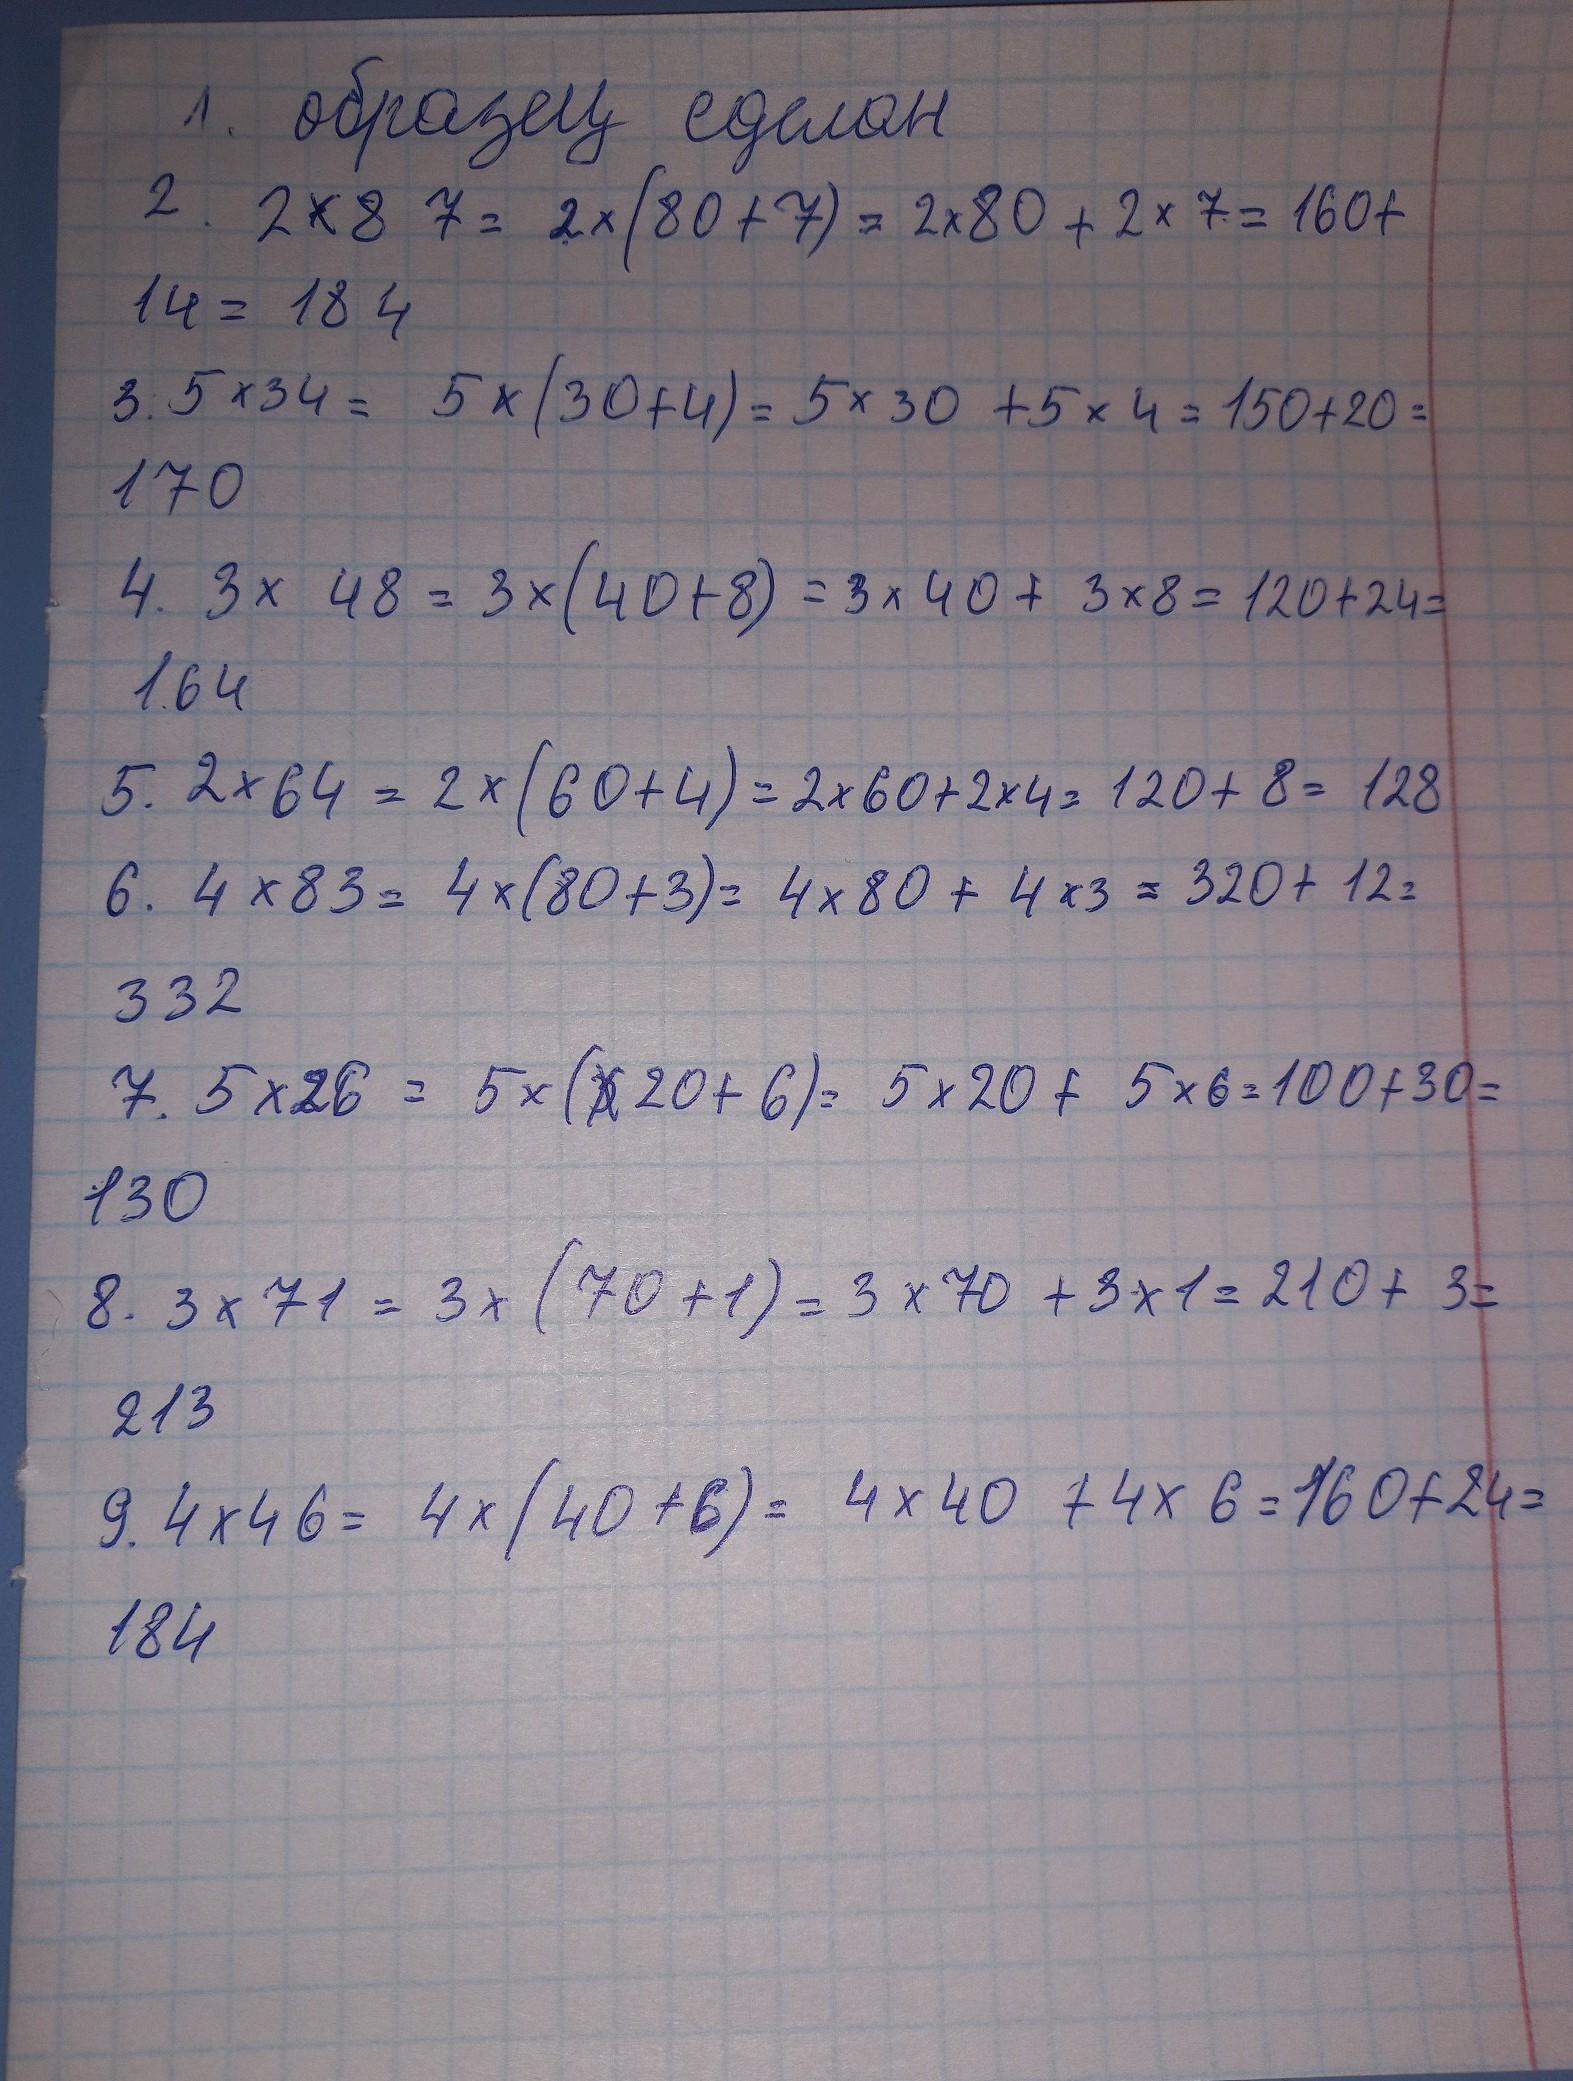 1. образец сделан
2. 2×87= 2×(80+7)= 2×80+2×7=160+
14= 184
3. 5×34= 5×(30+4)= 5×30 +5×4=150+20=
170
4. 3× 48=3×(40+8)=3×40+ 3×8=120+24=
164
5. 2×64=2×(60+4)=2×60+2×4= 120+8= 128
6. 4×83= 4×(80+3)= 4×80+ 4×3= 320+ 12=
332
7. 5×26 = 5×(20+6)= 5×20+ 5×6=100+30=
130
8. 3×71 = 3×(70+1)= 3×70 +3×1=210+ 3=
213
9. 4×46= 4×(40+6)= 4×40 +4×6=160+24=
184